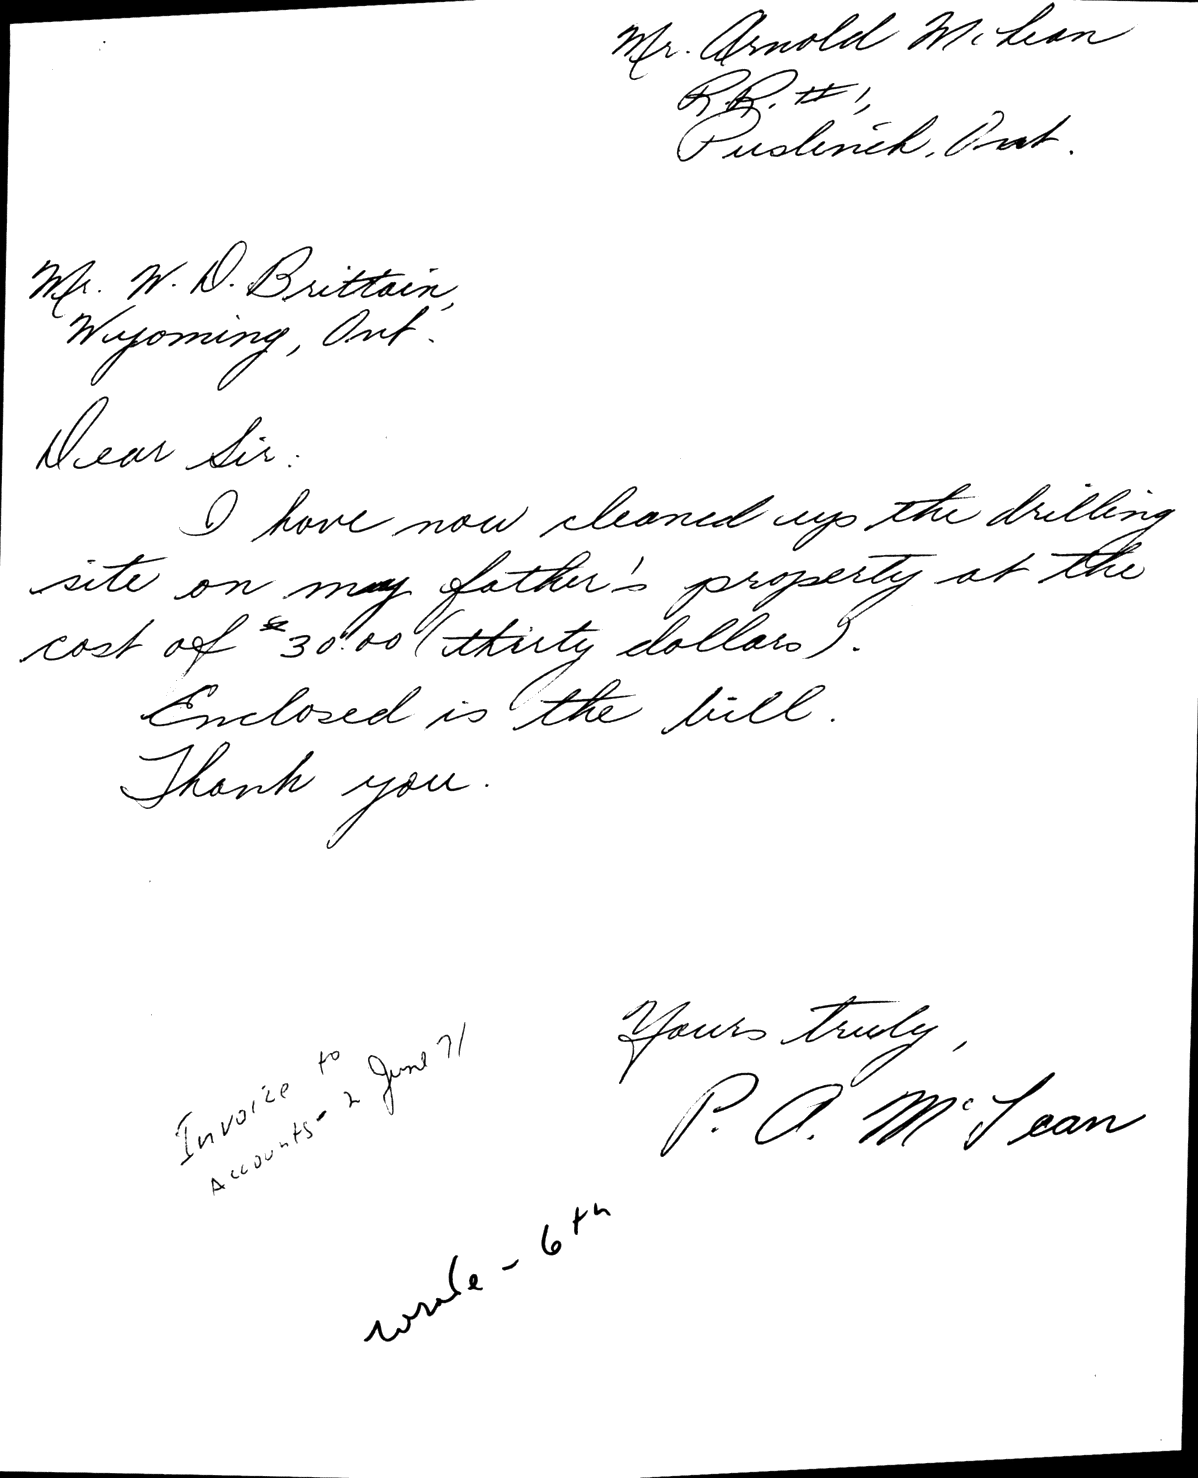 Mr. Arnold McLean
R.R. #1,
Puslinch, Ont.
Mr. W. D. Brittain,
Wyoming, Ont.
Dear Sir:
I have now cleaned up the drilling
site on my father's property at the
cost of $30.00 (thirty dollars).
Enclosed is the bill.
Thank you.
Yours truly,
P. A. McLean
Invoice to
Accounts - 2 June 71
wrote - 6th